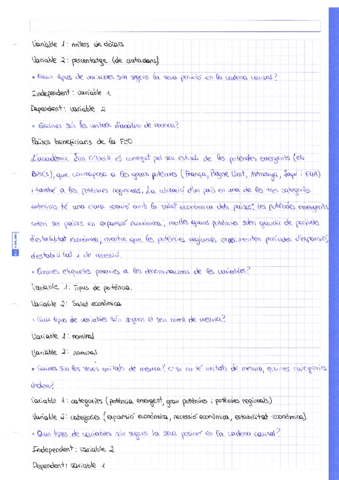 Variable 1: milers de dòlars
Variable 2: percentatge (de ciutadans)
• Quin tipus de variables són segons la seva posició en la cadena causal?
Independent: variable 1
Dependent: variable 2
• Quines són les unitats d'anàlisi de recerca?
Països beneficiaris de la
L'acadèmic Dan O'Neill el conegut pel seu estudi de les potències emergents (els
BRICS), que contraposa a les grans potències (França, Regne Unit, Alemanya, Japó i EUA)
i també a les potències regionals. La situació d'un país en una de les tres categories
anteriors té una clara relació amb la salut econòmica dels països: les potències emergents
solen ser països en expansió econòmica, mentre grans potències solen gaudir de períodes
d'estabilitat econòmica, mentre que les potències regionals experimenten períodes d'expansió,
d'estabilitat i de recessió.
• Quines etiquetes posaries a les denominacions de les variables?
Variable 1: Tipus de potència.
Variable 2: Salut econòmica
• Quin tipus de variables són segons el seu nivell de mesura?
Variable 1: nominal
Variable 2: nominal
• Quines són les seves unitats de mesura? O si no té unitats de mesura, quines categories
tindria?
Variable 1: categories (potència emergent, gran potències i potències regionals)
Variable 2: categories (expansió econòmica, recessió econòmica, estabilitat econòmica)
• Quin tipus de variables són segons la seva posició en la cadena causal?
Independent: variable 2
Dependent: variable 1